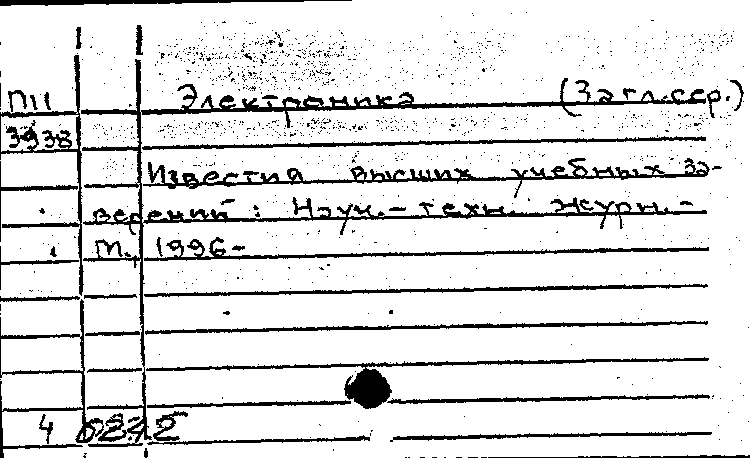 П11 Электроника (Загл.сер.)
3938
Известия высших учебных за-
ведений : Науч.- техн. журн.-
М., 1996-
4